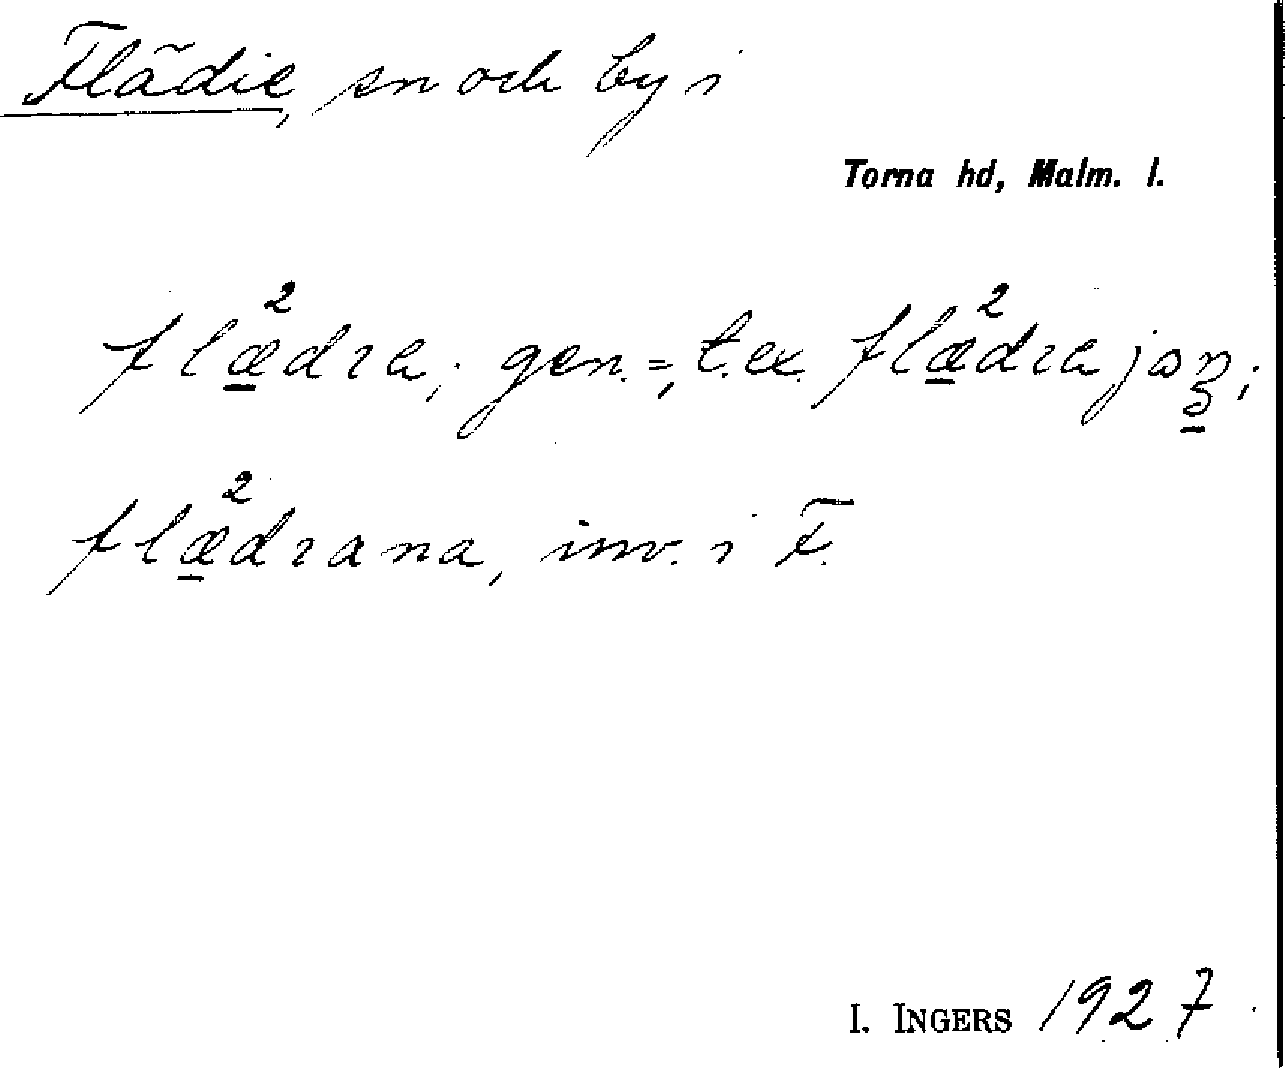 Flädie, sn och by i
Torna hd, Malm. l.
flæ̱²dra; gen. =, t.ex. flæ̱²drajoṉs;
flæ̱²drana, inv. i F.
I. INGERS 1927